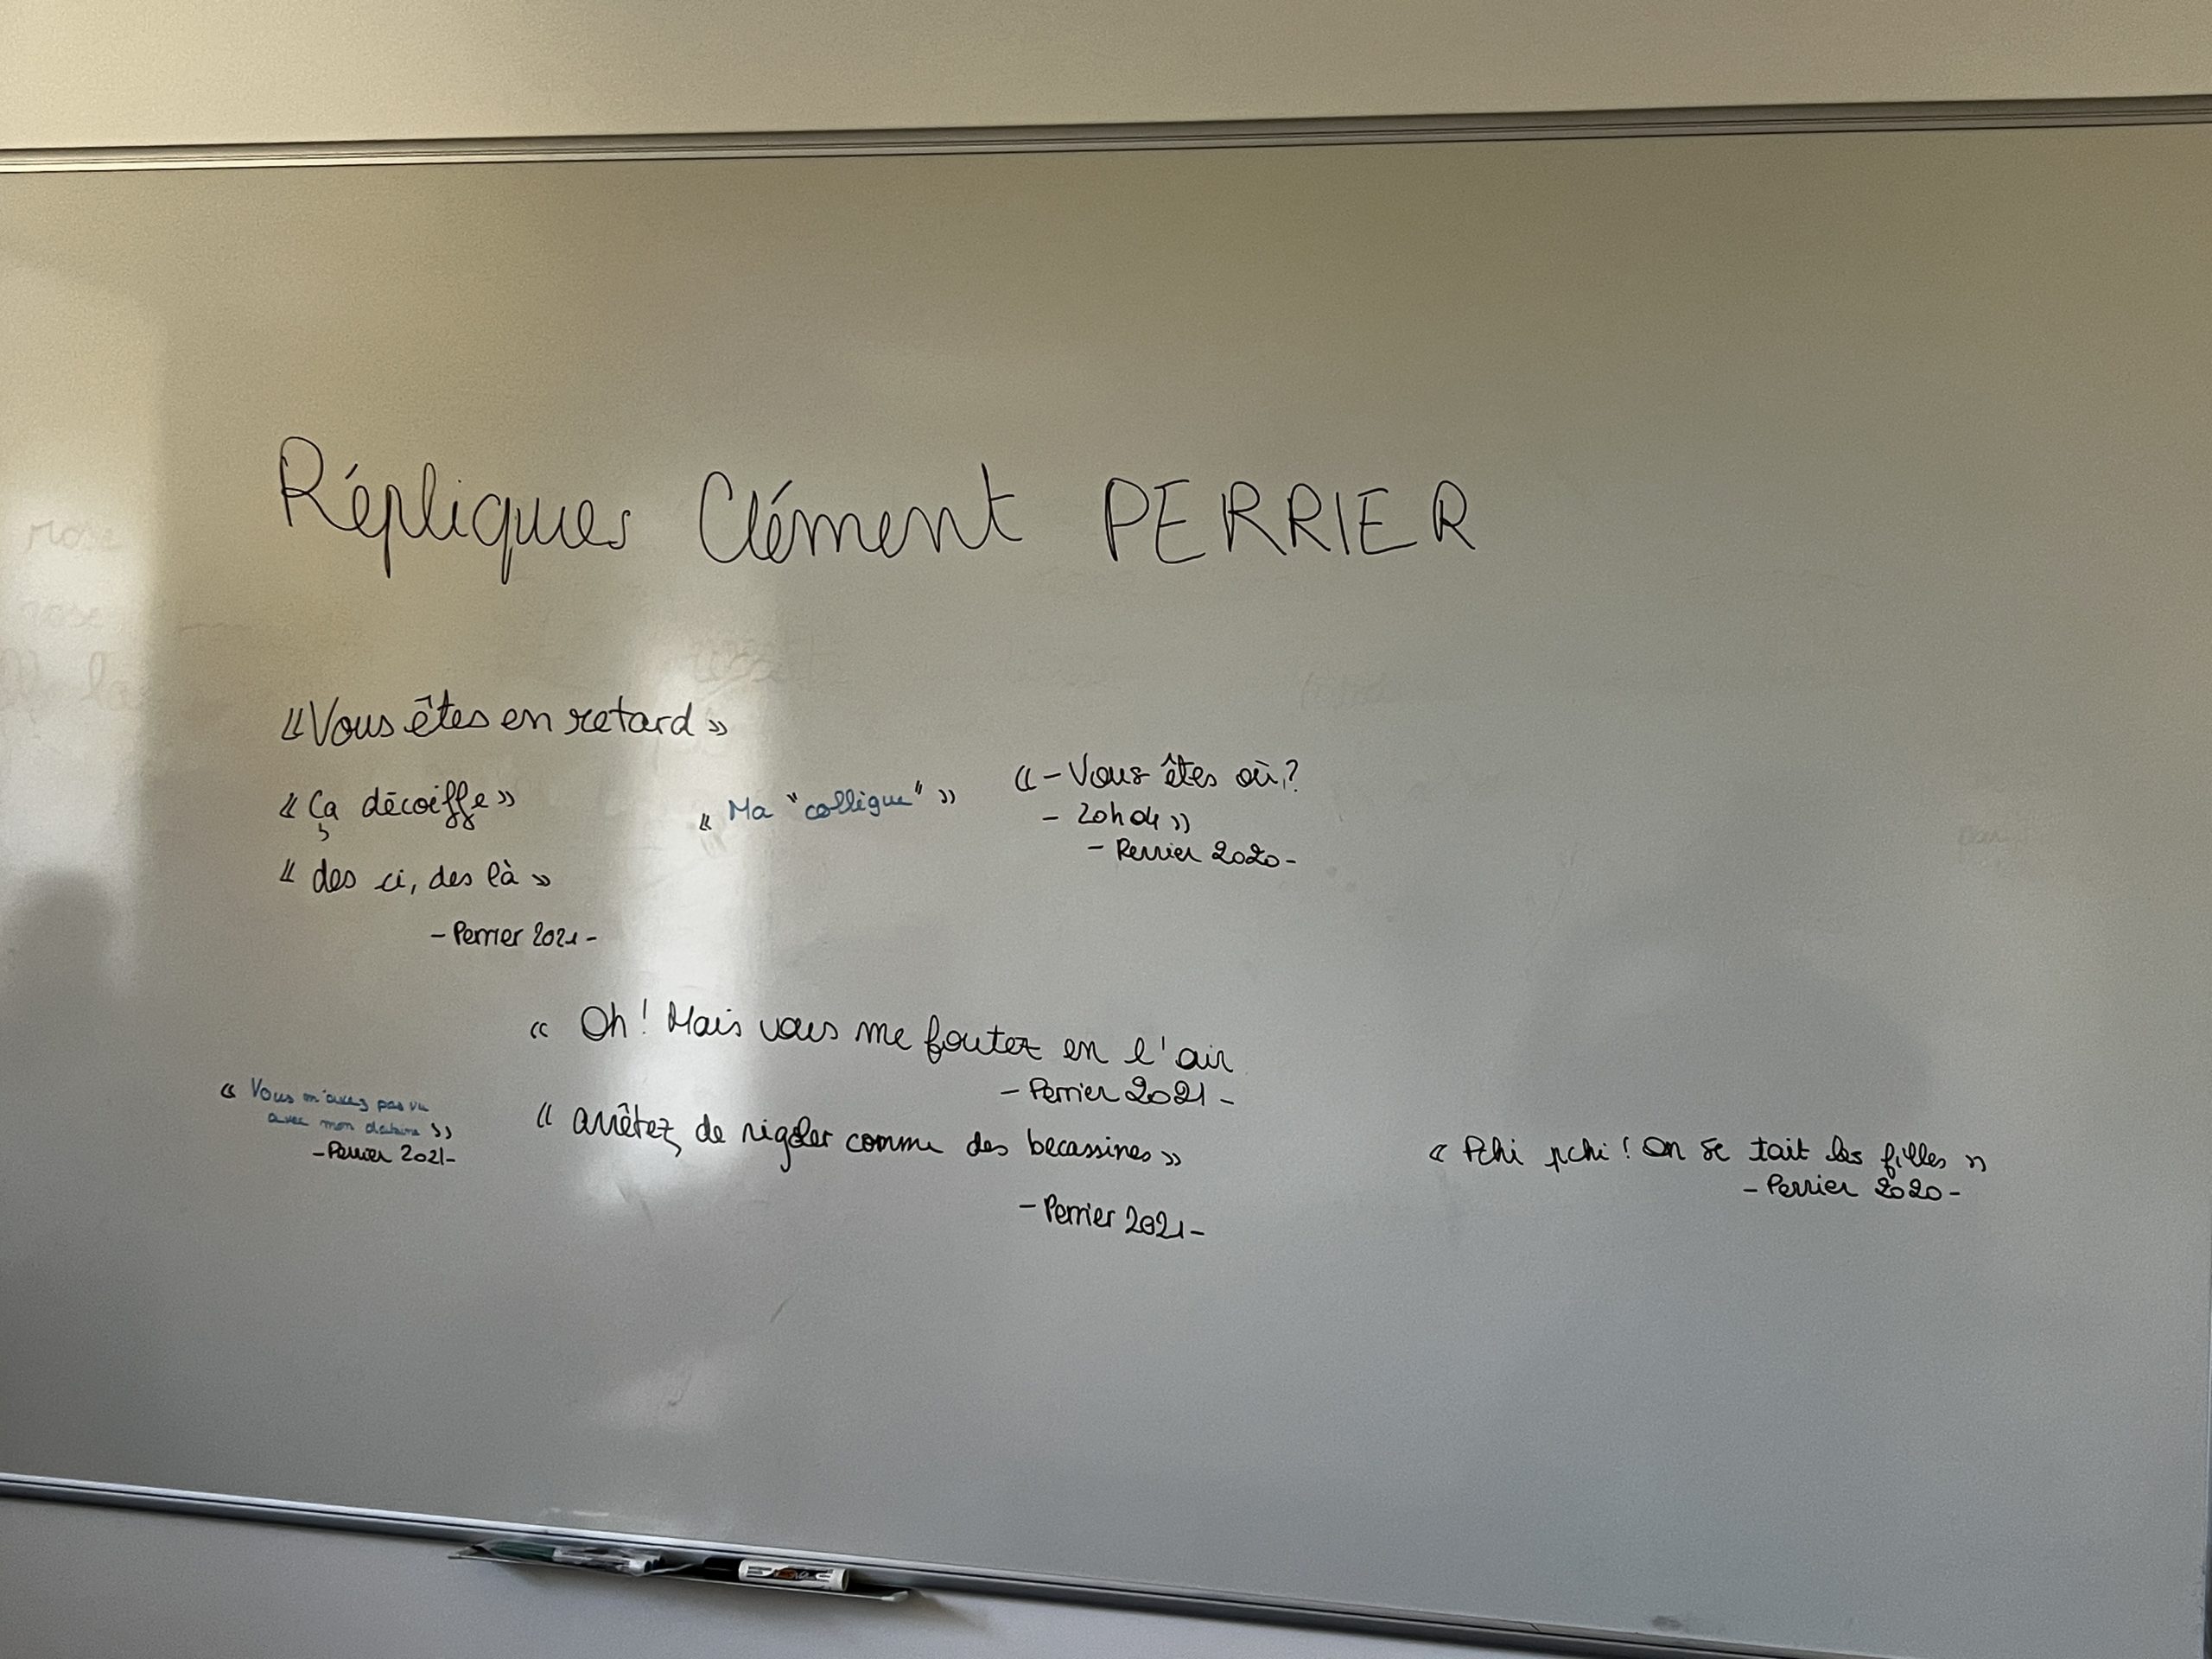 Répliques Clément PERRIER
«Vous êtes en retard»
« Ça décoiffe»
« des ci, des là »
- Perrier 2021 -
« Ma "collègue" »
« - Vous êtes où,?
- 20h04 »
- Perrier 2020 -
« Oh! Mais vous me foutez en l'air
- Perrier 2021 -
« arrêtez de rigoler comme des becassines »
- Perrier 2021 -
« Vous m'avez pas vu
avec mon »
- Perrier 2021-
« Pchi pchi ! On se tait les filles »
- Perrier 2020 -